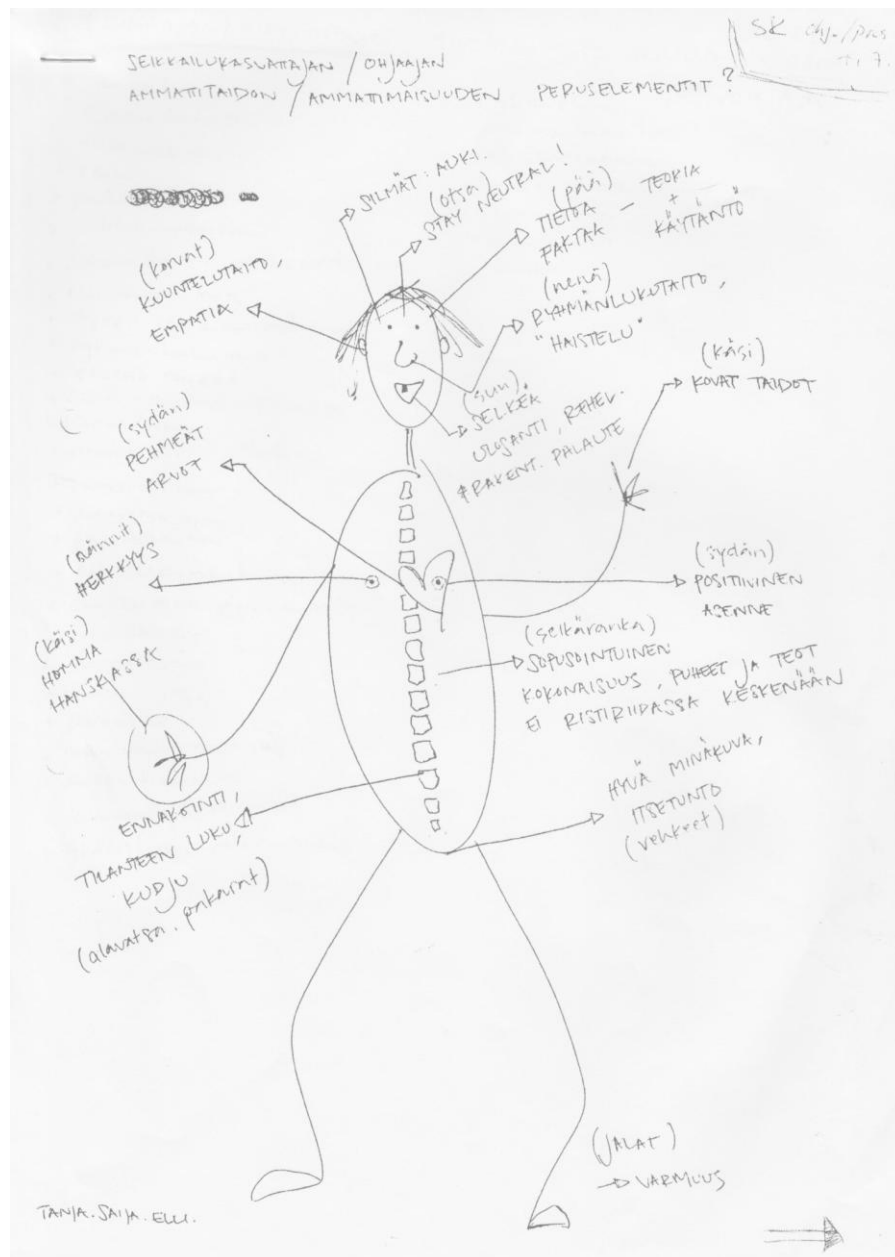 SK ohj./pros
SEIKKAILUKASVATTAJAN / OHJAAJAN
AMMATTITAIDON / AMMATTIMAISUUDEN PERUSELEMENTIT?
SILMÄT: AUKI.
(otsa)
STAY NEUTRAL!
(pää)
TIETOA — TEORIA
FAKTAA +
KÄYTÄNTÖ
(korvat)
KUUNTELUTAITO,
EMPATIA
(nenä)
RYHMÄNLUKUTAITO,
"HAISTELU"
(käsi)
KOVAT TAIDOT
(suu)
SELKEÄ
ULOSANTI, REHEL.
RAKENT. PALAUTE
(sydän)
PEHMEÄT
ARVOT
(nännit)
HERKKYYS
(sydän)
POSITIIVINEN
ASENNE
(käsi)
HOMMA
HANSKASSA
(selkäranka)
SOPUSOINTUINEN
KOKONAISUUS, PUHEET JA TEOT
EI RISTIRIIDASSA KESKENÄÄN
ENNAKOINTI,
TILANTEEN LUKU,
(alavatsa, pakarat)
HYVÄ MINÄKUVA,
ITSETUNTO
(JALAT)
VARMUUS
TANJA. SAIJA. ELLI.